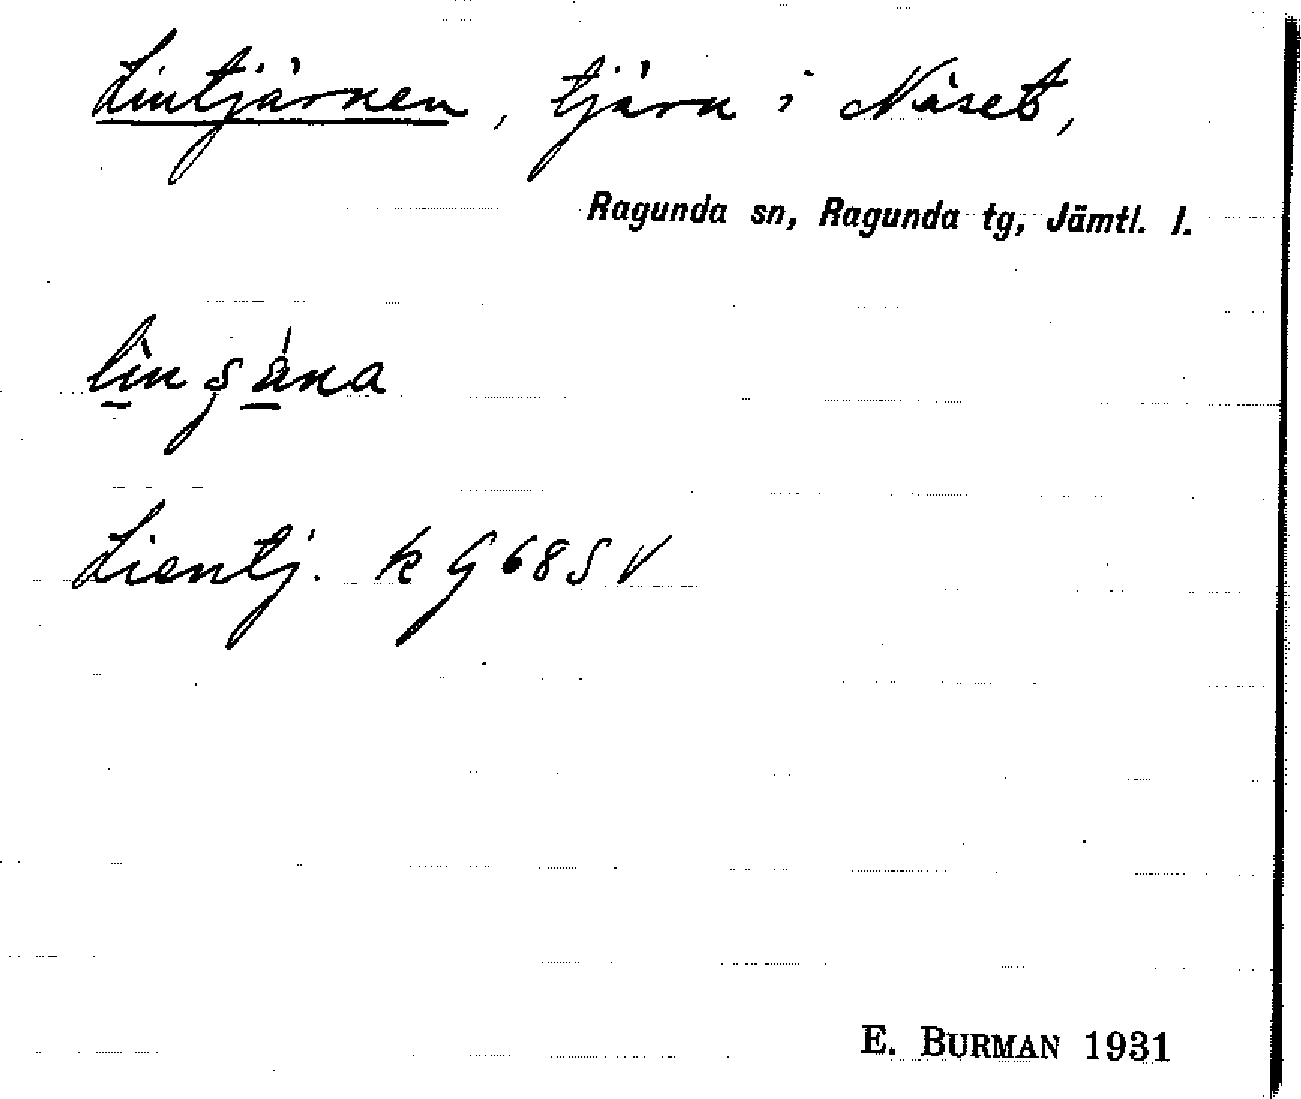 Lintjärnen, tjärn i Näset,
Ragunda sn, Ragunda tg, Jämtl. l.
Lientj. k G 68 SV
E. BURMAN 1931